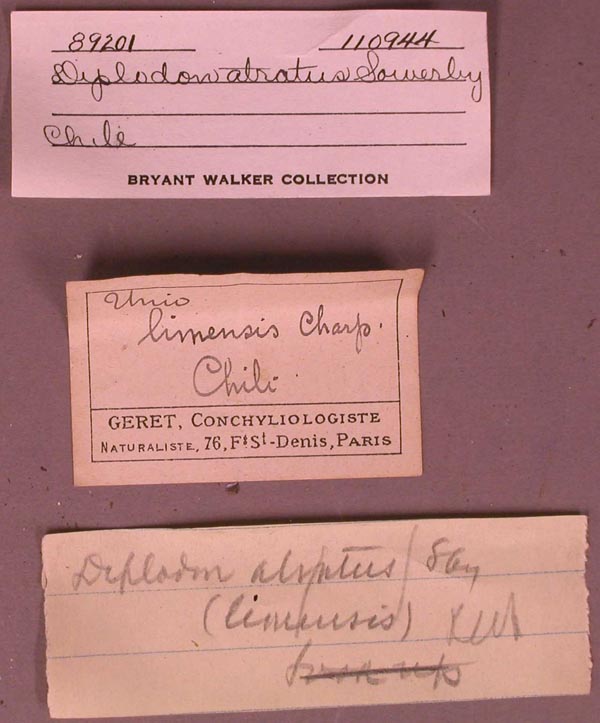 89201 110944
Diplodon atratus Sowerby
Chile
BRYANT WALKER COLLECTION
Unio
limensis Charp.
Chili
GERET, CONCHYLIOLOGISTE
NATURALISTE, 76, Fg St-Denis, PARIS
Diplodon atratus / Sby
(limensis)